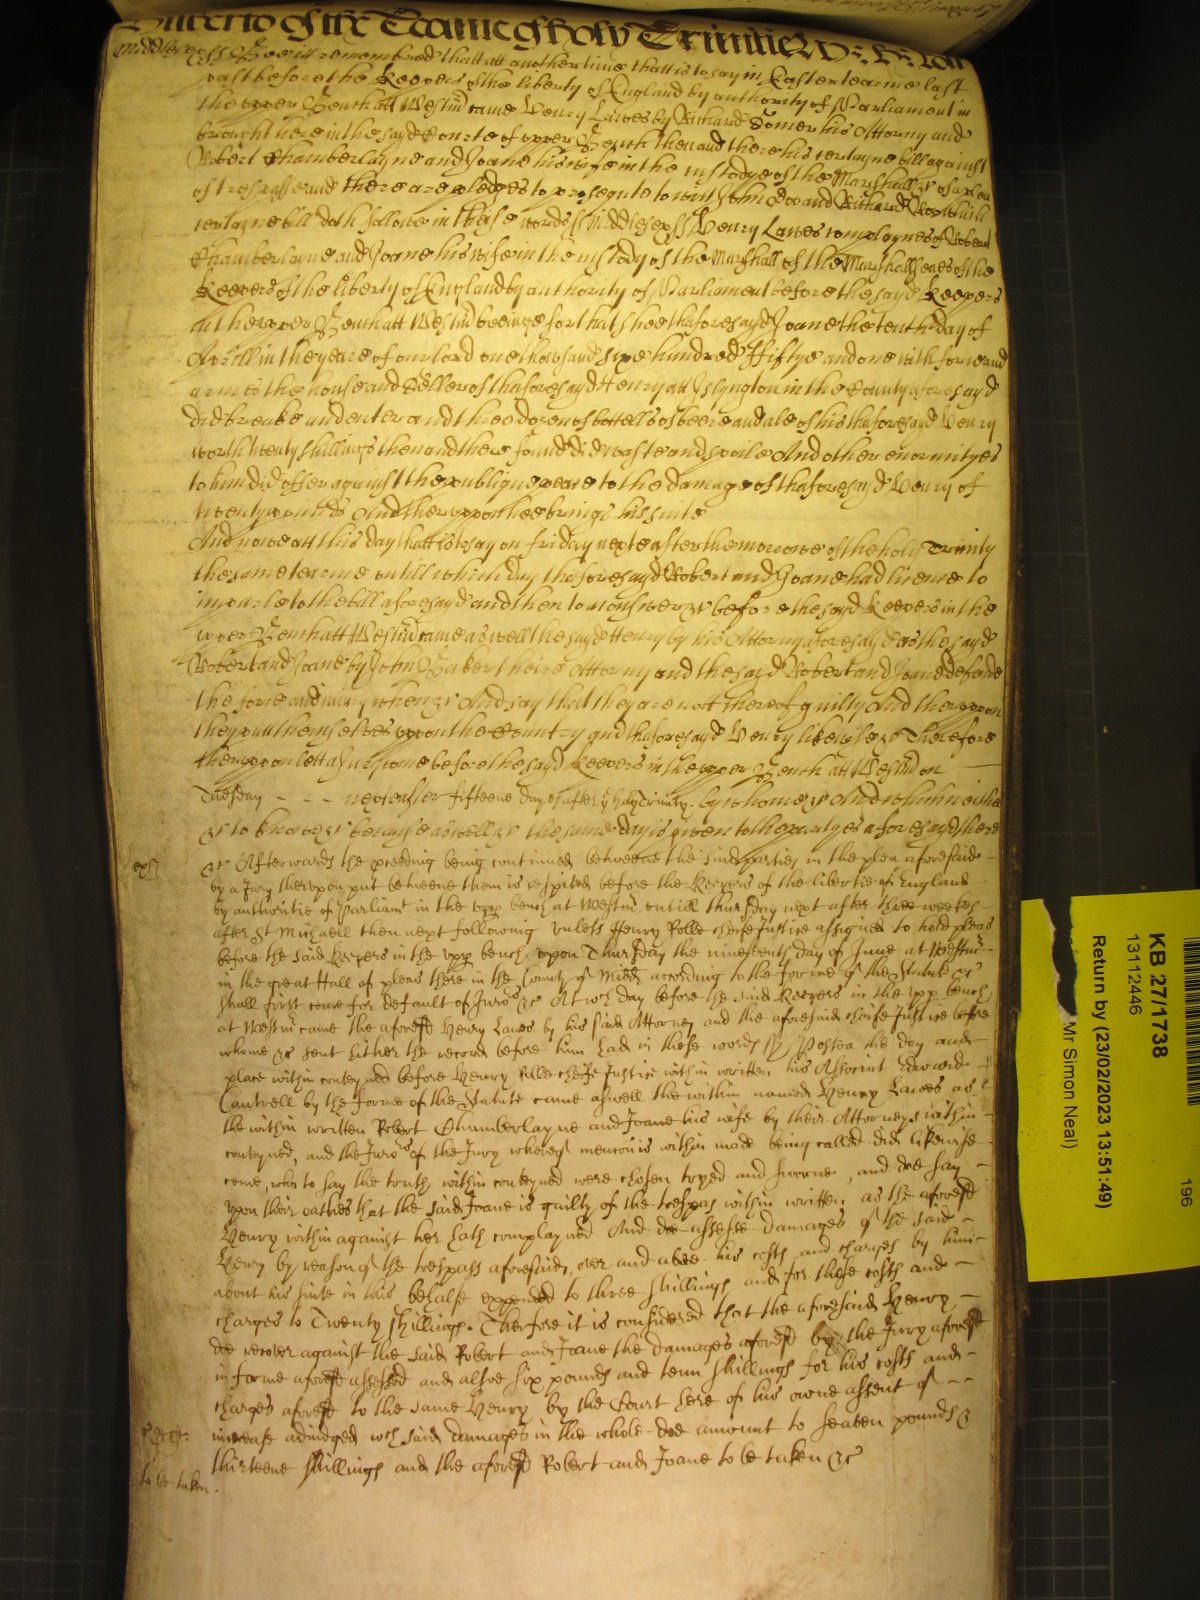 of the Tearme of holy Trinitie
Middlesex ss Bee itt remembred thatt att another time thatt is to say in Easter tearme last
past before the Keepers of the liberty of England by authority of Parliament in
the upper Bench att Westm̄ came Henry Lawes by Richard Somer his Attorny and
brought here in the sayd Courte of upper Bench then and there his certayne bill against
Robert Chamberlayne and Joane his wife in the custodye of the Marshall &c of a plea
of trespasse and there are pledges to prosequute to witt John Doo and Richard Roo which
certayne bill doth followe in these words ss Middlesex ss Henry Lawes complaynes of Robert
Chamberlayne and Joane his wife in the custody of the Marshall of the Marshallseas of the
Keepers of the liberty of England by authority of Parliament before the sayd Keepers
in the upper Bench att Westm̄ beeinge for that shee thaforesayd Joane the tenth day of
Aprill in the yeare of our lord one thousand sixe hundred Fiftye and one with force and
armes the house and Seller of thaforesayd Henry att Islyngton in the County aforesayd
did breake and enter and three dozen of bottells of beere and ale of his thaforesayd Henry
worth twenty shillings then and there found did waste and spoile And other enormityes
to him did offer against the publique peace to the damage of thaforesayd Henry of
twenty pounds And theruppon hee brings his suite
And nowe att this day thatt is to say on friday nexte after the morrowe of the holy Trinity
the same tearme untill which day thaforesayd Robert and Joane had licence to
imparle to the bill aforesayd and then to answer &c before the sayd Keepers in the
upper Bench att Westm̄ came as well the sayd Henry by his Attorny aforesayd as the sayd
Robert and Joane by John Baker theire Attorny and the sayd Robert and Joane defende
the force and iniury when &c And say that they are nott thereof guilty And theruppon
they putt themselves uppon the Countrey and thaforesayd Henry likewise &c Therefore
theruppon lett a Jury come before the sayd Keepers in the upper Bench att Westm̄ on
Tuesday - - - next after fifteene dayes after ye holy Trinity by whome &c And who neither
&c to knowe &c because as well &c the same day is given to the partyes aforesayd there
&c Afterwards the proceeding being continued betweene the said parties in the plea aforesaide
by a Jury therupon put betweene them is respited before the Keepers of the libertie of England
by authoritie of Parliamt in the upp bench at Westm̄ untill thursday next after three weekes
after St Michaell then next following unless Henry Rolle cheife Justice assigned to hold pleas
before the said Keepers in the upp bench upon Thursday the nineteenth day of June at Westm̄
in the great Hall of pleas there in the County of Midd according to the forme of the Statute &c
shall first come for default of Jurors &c At wch day before the said Keepers in the upp bench
at Westm̄ came the aforesd Henry Lawes by his said Attorney and the aforesaid cheife Justice before
whome &c sent hither the record before him had in these words ss Postea the day and
place within conteyned before Henry Rolle cheife Justice within written his Associat Edward
Cantrell by the forme of the Statute came aswell the within named Henry Lawes as
the within written Robert Chamberlayne and Joane his wife by their Attorneys within
conteyned, and the Jurors of the Jury whereof mencon is within made being called did likewise
come, who to say the truth within conteyned were chosen tryed and sworne, and doe say
upon their oathes that the said Joane is guilty of the trespas within written as the aforesd
Henry within against her hath complayned And doe assesse damages of the said
Henry by reason of the trespass aforesaid, over and above his costs and charges by him
about his suite in this behalfe expended to three shillings and for those costs and
charges to Twenty shillings. Therfore it is considered that the aforesaid Henry
doe recover against the said Robert and Joane the damages aforesd by the Jury aforesd
in forme aforesd assessed and alsoe six pounds and tenn shillings for his costs and
charges aforesd to the same Henry by the Court here of his owne assent of
increase adiudged wch said damages in the whole doe amount to seaven pounds &
thirteene shillings and the aforesd Robert and Joane to be taken &c
to be taken.
KB 27/1738
13112446
Return by (23/02/2023 13:51:49)
Mr Simon Neal)
196